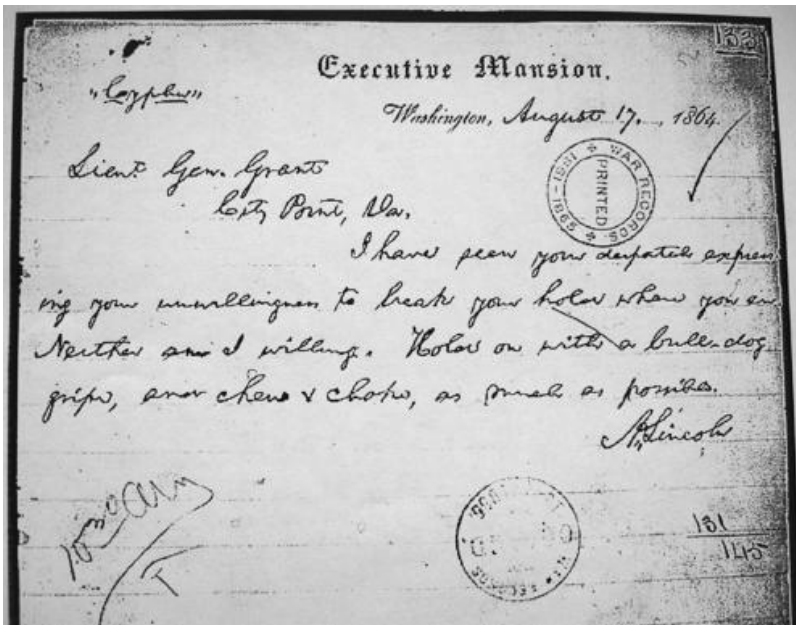 133
"Cypher"
Executive Mansion,
Washington, August 17., 1864.
Lieut. Gen. Grant
City Point, Va.
I have seen your despatch express
ing your unwillingness to break your hold where you are
Neither am I willing. Hold on with a bull-dog
gripe, and chew & choke, as much as possible.
A. Lincoln
WAR RECORDS 1861-1865
PRINTED
131
145